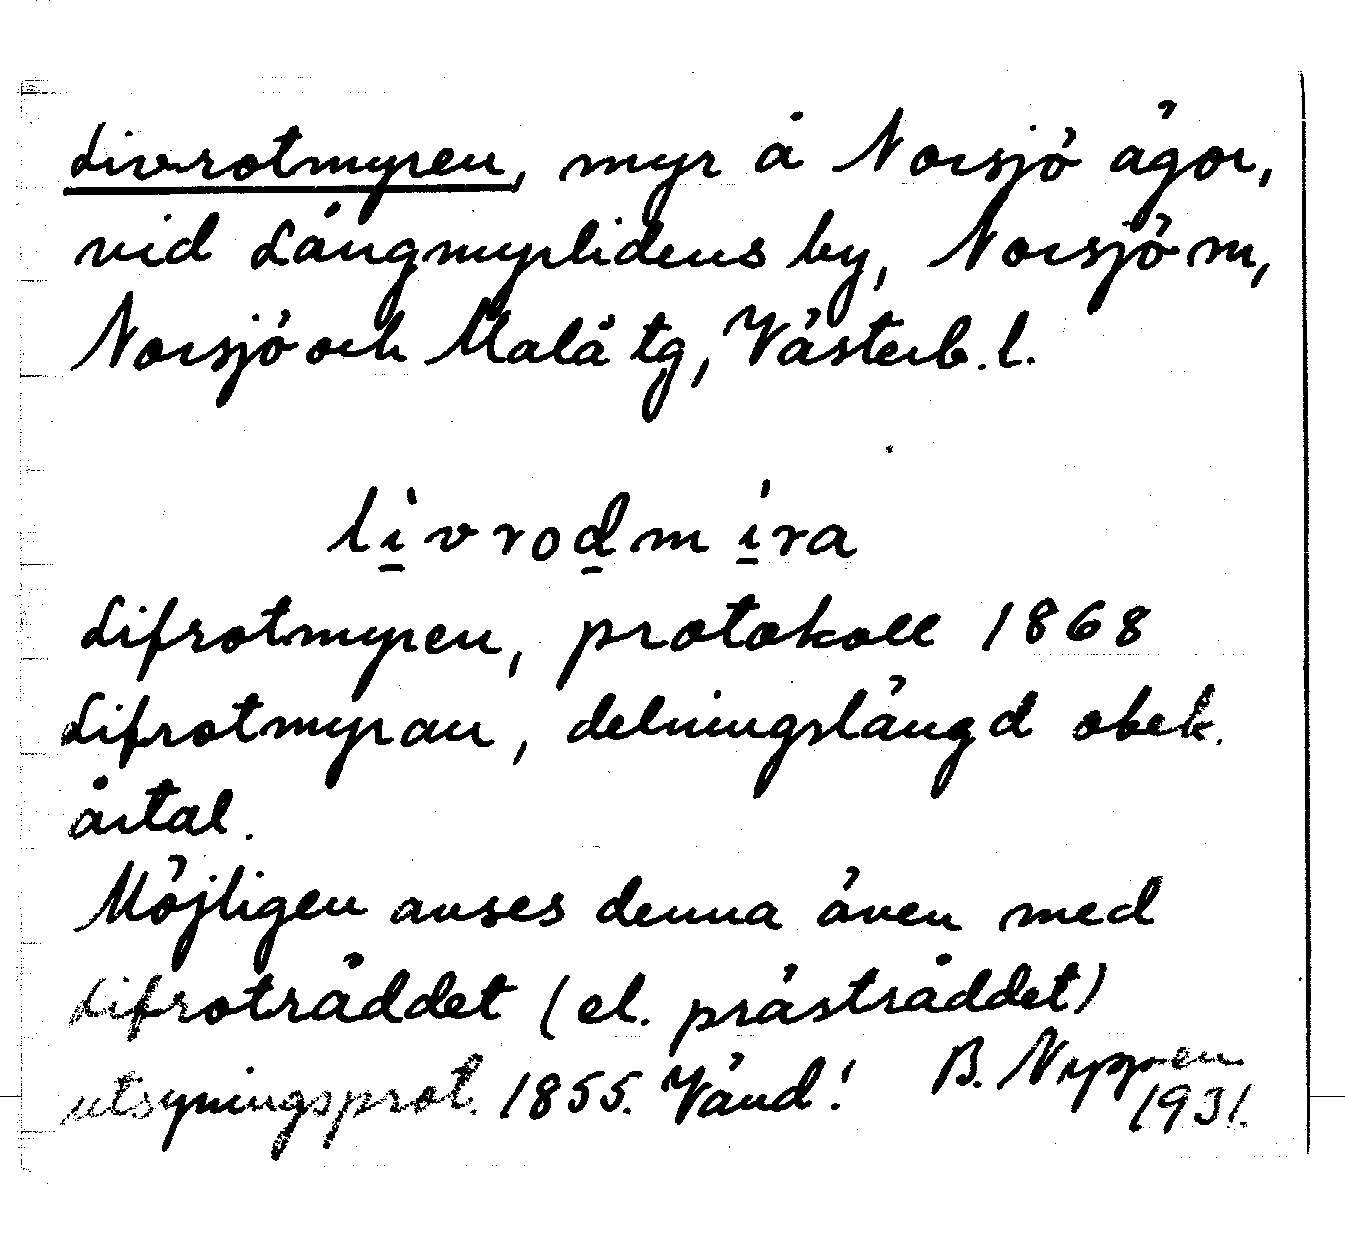 Livrotmyren, myr å Norsjö ägor,
vid Långmyrlidens by, Norsjö sn,
Norsjö och Malå tg, Västerb. l.
livrodmira
Lifrotmyren, protokoll 1868
Lifrotmyran, delningslängd obek.
årtal.
Möjligen avses denna även med
Lifroträddet (el. prästträddet)
utsyningsprot. 1855. Vänd! B. Nyppen
1931.